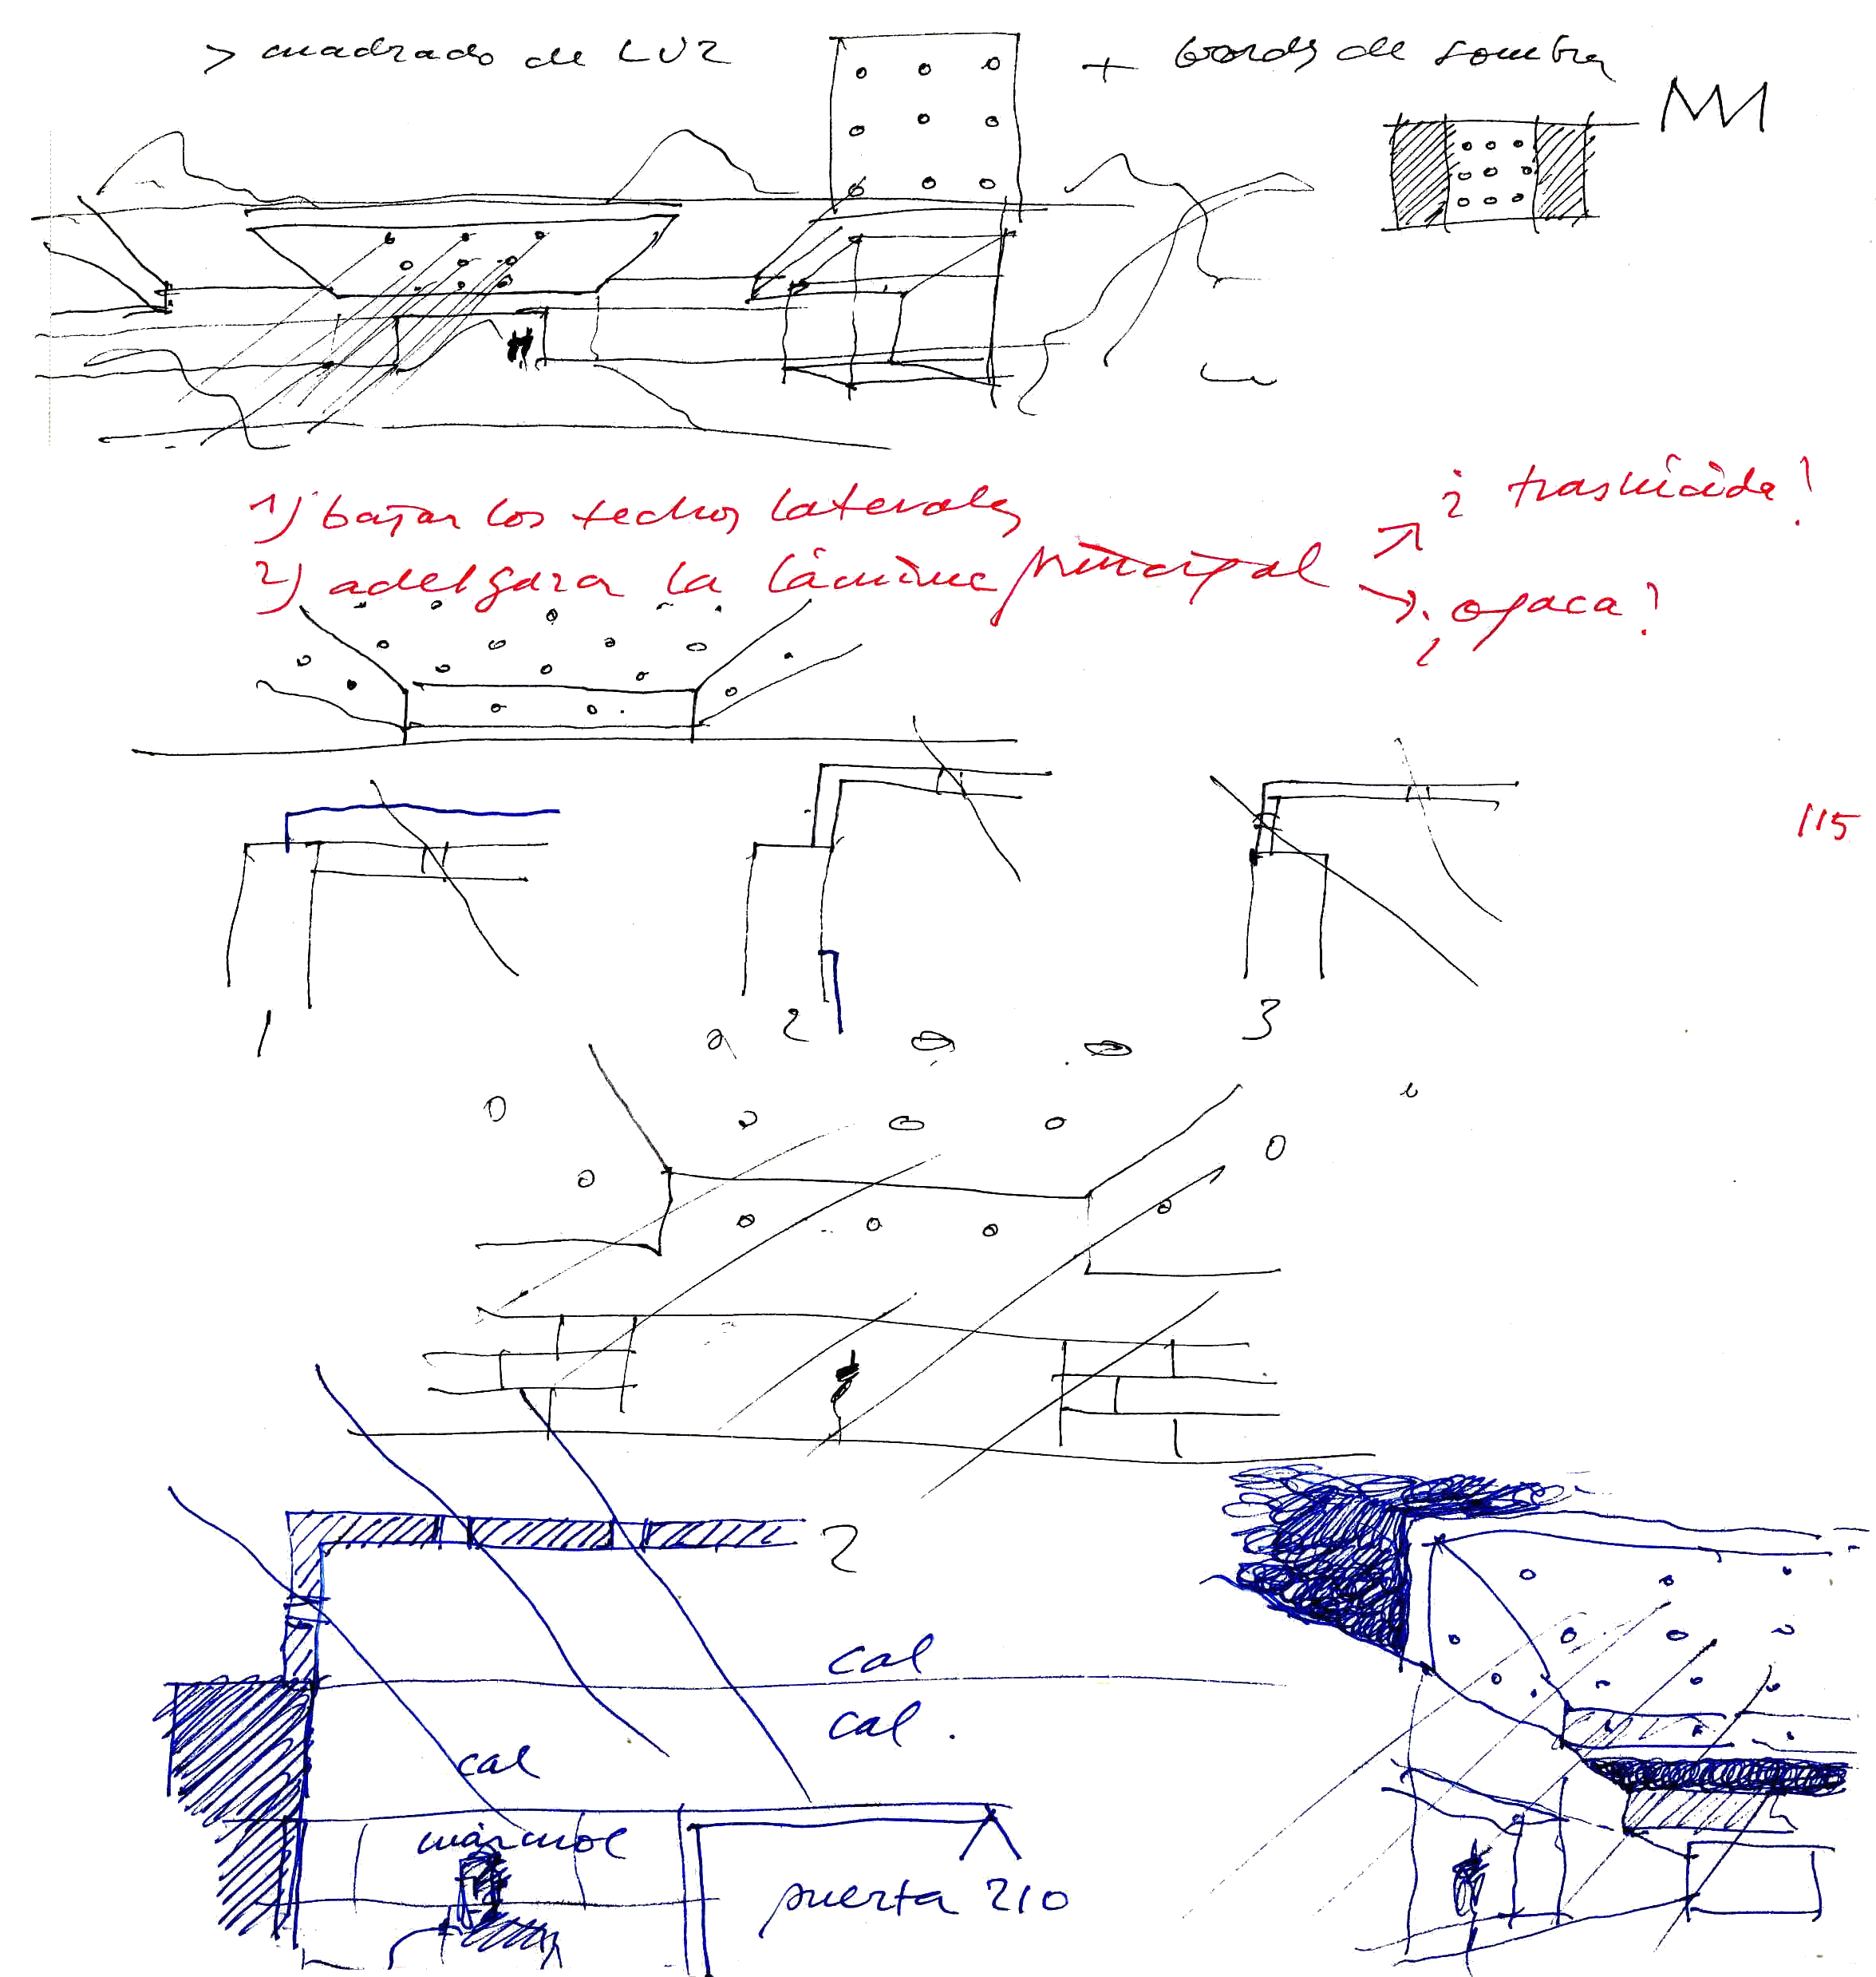 > cuadrado de LUZ + bordes de sombra
1) bajar los techos laterales
2) adelgazar la lámina principal
¿ traslúcida?
¿ opaca?
115
1
2
3
2
cal
cal.
cal
mármol
puerta 210